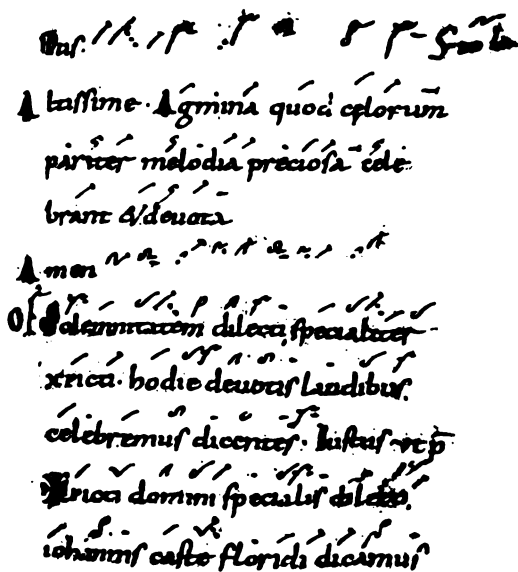 tus.
Altissime. Agmina quoq celorum
pariter melodia preciosa cele
brant & deuota
Amen
Solemnitatem dilecti specialiter
xpicti. hodie deuotis laudibus.
celebremus dicentes. Iustus ut p
domini specialis
iohannis caste floridi dicamus